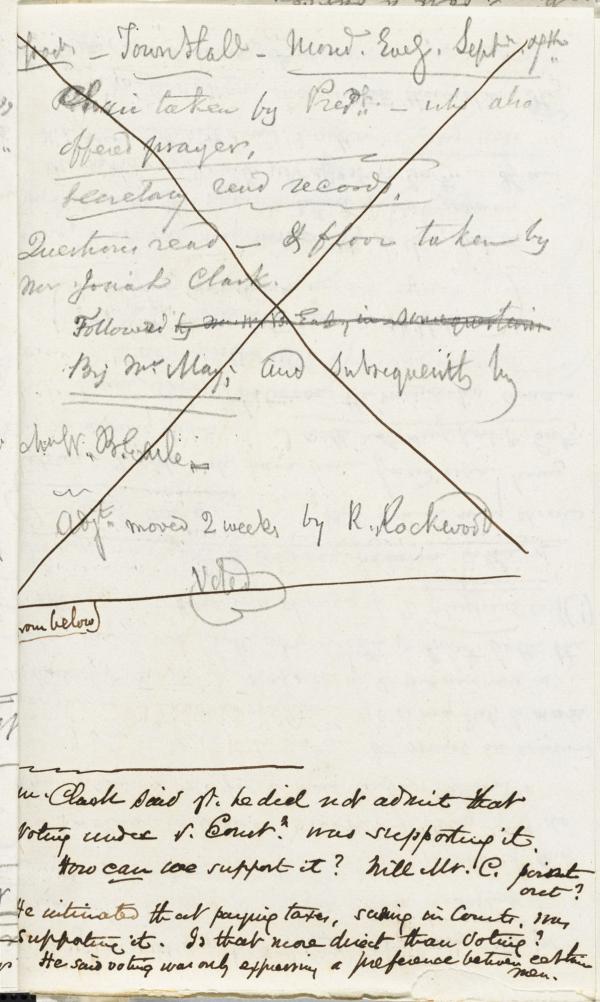 – Town Hall – Mond. Eveg. Septr.
Chair taken by Presdt. – who also
offered prayer,
Secretary read records.
Questions read – & floor taken by
Mr Josiah Clark.
Followed by Mr
By Mr May; and subsequently by
Mr W. B.
Adjt. moved 2 weeks by R. Rockwood
Voted
from below)
Mr. Clark said yt. he did not admit that
voting under ye. Const.n was supporting it.
How can we support it? Will Mr. C. point
out?
He intimated that paying taxes, suing in Courts, was
supporting it. Is that more direct than voting?
He said voting was only expressing a preference between certain
men.